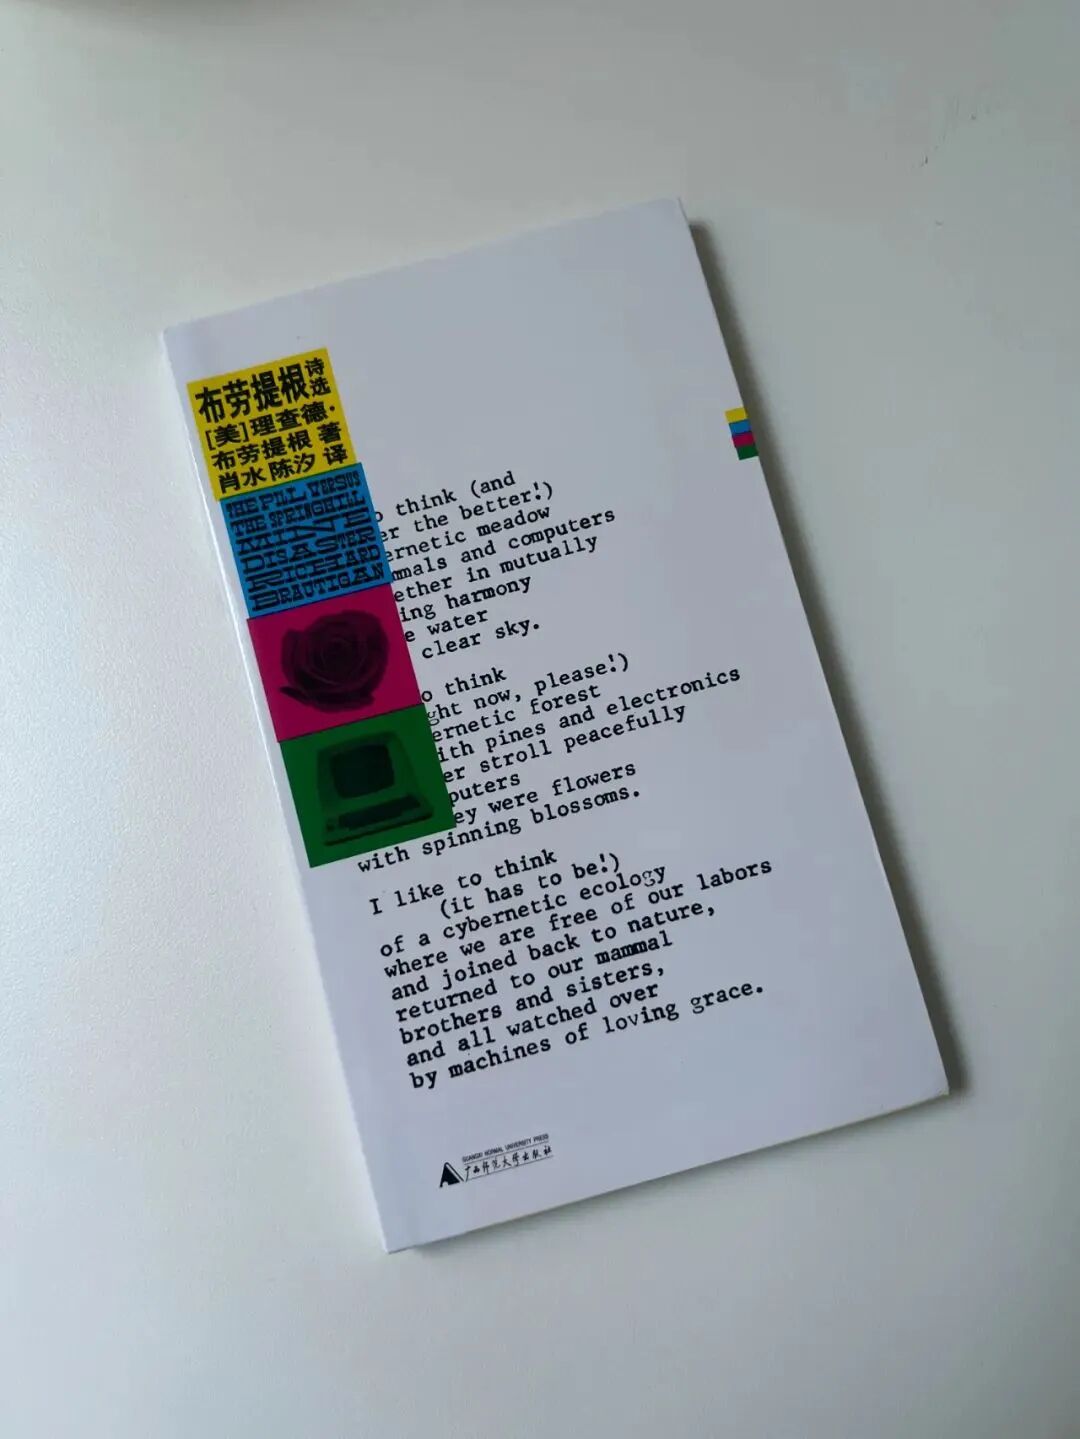 布劳提根诗选
[美]理查德·
布劳提根 著
肖水 陈汐 译
THE PILL VERSUS
THE SPRINGHILL
MINE
DISASTER
RICHARD
BRAUTIGAN
o think (and
er the better!)
ernetic meadow
mmals and computers
ether in mutually
ing harmony
e water
clear sky.
o think
ght now, please!)
ernetic forest
ith pines and electronics
er stroll peacefully
puters
ey were flowers
with spinning blossoms.
I like to think
(it has to be!)
of a cybernetic ecology
where we are free of our labors
and joined back to nature,
returned to our mammal
brothers and sisters,
and all watched over
by machines of loving grace.
GUANGXI NORMAL UNIVERSITY PRESS
广西师范大学出版社